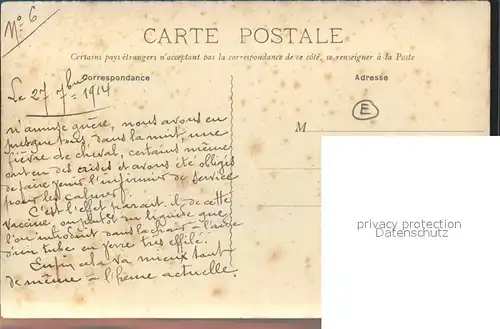 No. 6
CARTE POSTALE
Certains pays étrangers n'acceptant pas la correspondance de ce côté, se renseigner à la Poste
Correspondance
Adresse
Le 27 7bre 1914
E
M
n'amuse guère, nous avons eu
presque tous, dans la nuit, une
fièvre de cheval, certains même
ont eu des crises et avons été obligés
de faire venir l'infirmier de service
pour les calmer.
C'est l'effet parait-il de cette
vaccine ou plutôt un liquide que
l'on introduit dans la chair à l'aide
d'un tube en verre très effilé.
Enfin cela va mieux tout
de même à l'heure actuelle.
privacy protection
Datenschutz